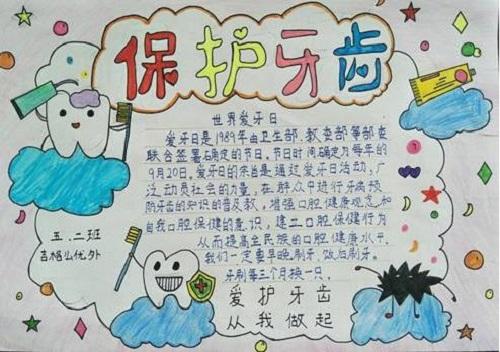 保护牙齿
世界爱牙日
爱牙日是1989年由卫生部、教委部等部委
联合签署确定的节日,节日时间确定为每年的
9月20日,爱牙日的宗旨是通过爱牙日活动,广
泛动员社会的力量,在群众中进行牙病预
防牙齿的知识的普及教,增强口腔健康观念和
自我口腔保健的意识,建立口腔保健行为
从而提高全民族的口腔健康水平。
我们一定要早晚刷牙,饭后刷牙。
牙刷每三个月换一只。
爱护牙齿
从我做起
五.二班
吉格弘优外